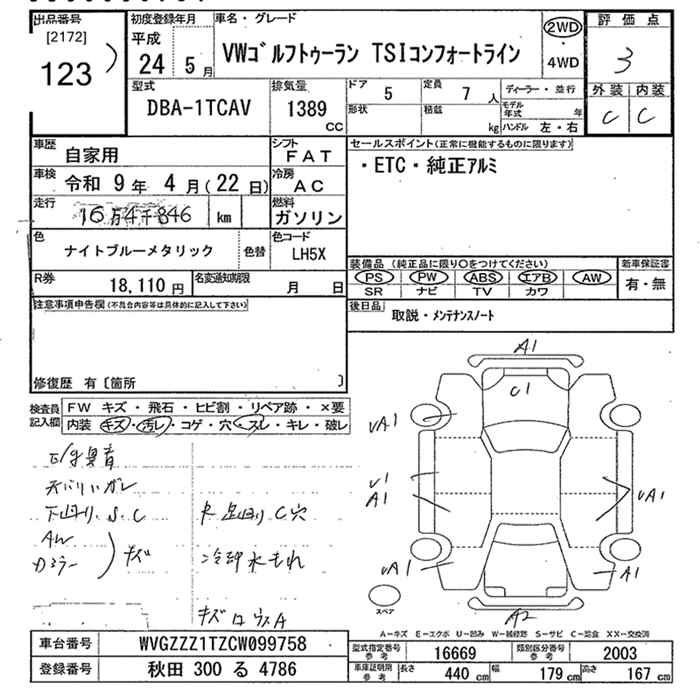 出品番号 初度登録年月 車名・グレード 評価点
[2172] 平成 2WD
123 24 5月 VWゴルフトゥーラン TSIコンフォートライン ・ 3
4WD
型式 排気量 ドア 5 定員 7人 ディーラー・並行 外装 内装
DBA-1TCAV 1389 形状 積載 モデル年式 年 C C
CC kg ハンドル 左・右
車歴 自家用 シフト FAT セールスポイント(正常に機能するものに限ります)
車検 令和 9年 4月(22日) 冷房 AC ・ETC・純正アルミ
走行 16万4千846 km 燃料 ガソリン
色 ナイトブルーメタリック 色替 色コード LH5X
装備品 (純正品に限り○をつけてください) 新車保証書
R券 18,110円 名変通知期限 月 日 PS PW ABS エアB AW 有・無
SR ナビ TV カワ
注意事項申告欄(不具合内容等は具体的に記入して下さい) 後日品 取説・メンテナンスノート
修復歴 有〔箇所 〕
検査員記入欄 FW キズ・飛石・ヒビ割・リペア跡・×要
内装 キズ・汚レ・コゲ・穴・スレ・キレ・破レ
A1
C1
UA1
U1
A1
UA1
UA1
A1
A2
下回り S.C
AW
キズ
C穴
冷却水もれ
スペア
A-キズ E-エクボ U-凹み W-補修跡 S-サビ C-腐食 XX-交換済
車台番号 WVGZZZ1TZCW099758 型式指定番号 参考 16669 類別区分番号 参考 2003
登録番号 秋田 300 る 4786 車庫証明用 参考 長さ 440 cm 幅 179 cm 高さ 167 cm